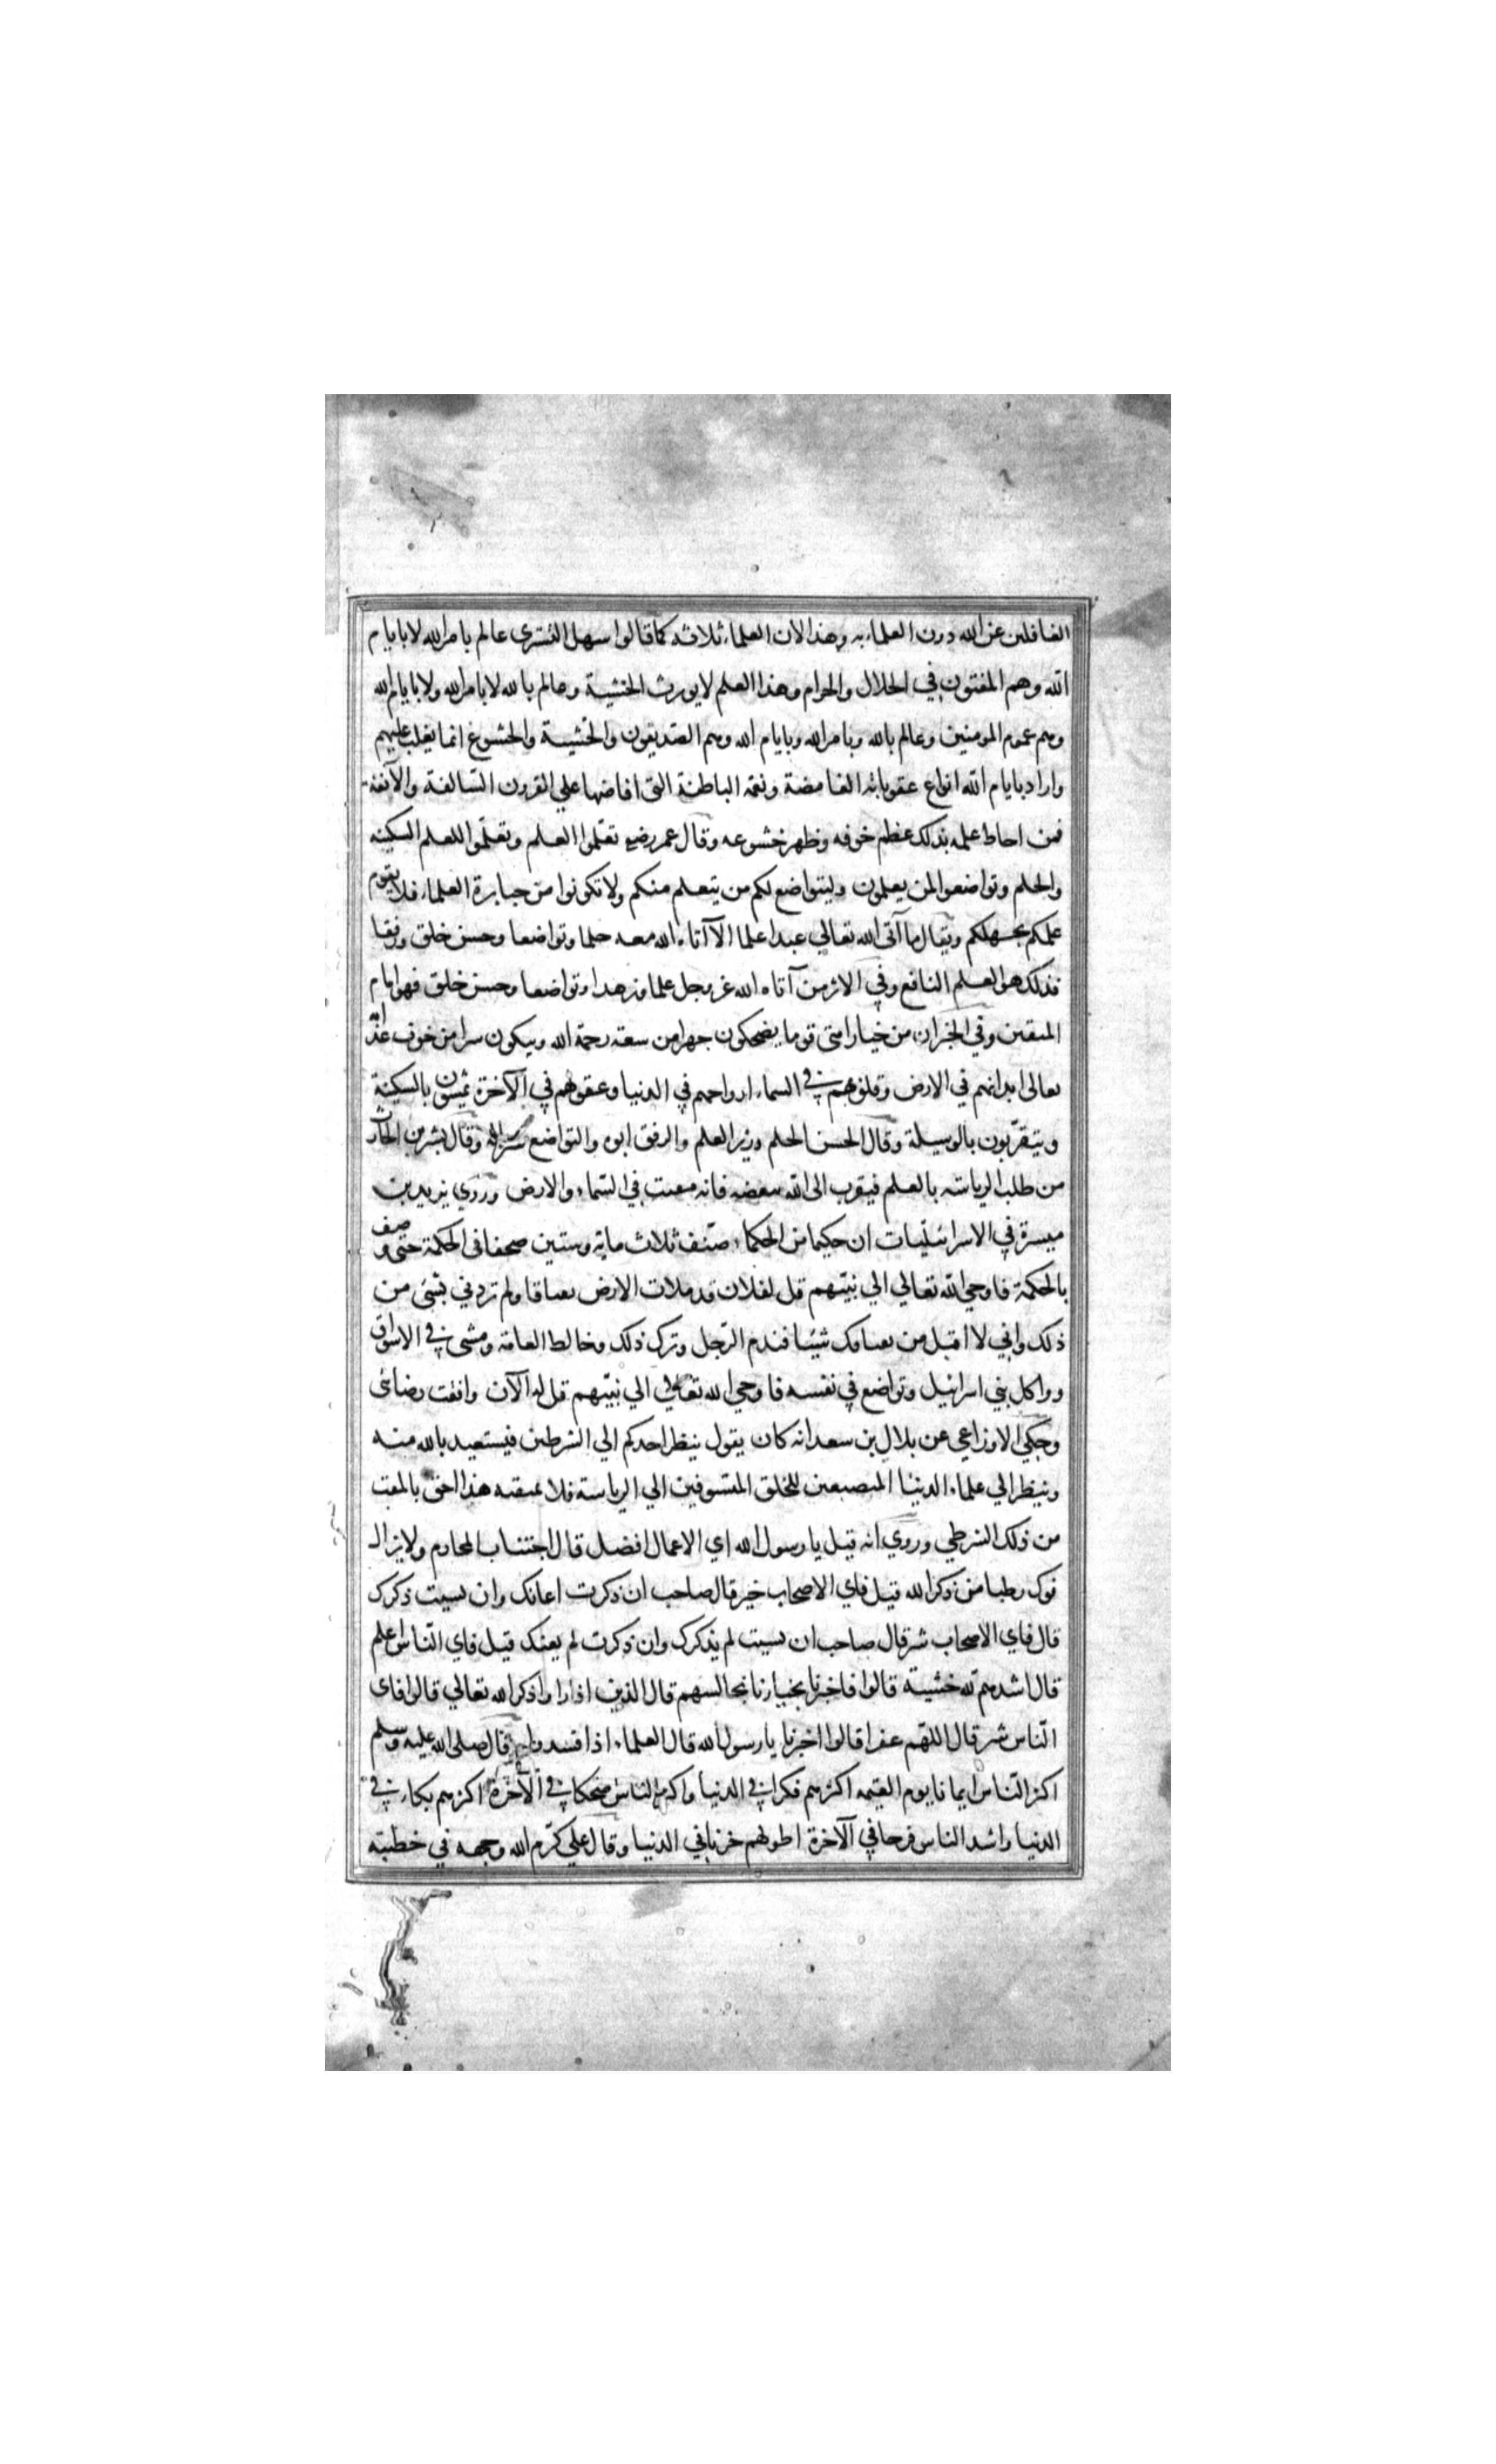 الغافلين عن الله دون العلماء به وهذا لان العلماء ثلاثه كما قالوا سهل التسترى عالم بامر الله لا بايام
الله وهم المفتون في الحلال والحرام وهذا العلم لا يورث الخشية وعالم بالله لا بامر الله ولا بايام الله
وهم عموم المومنين وعالم بالله وبامر الله وبايام الله وهم الصديقون والخشية والخشوع انما يغلب عليهم
واراد بايام الله انواع عقوباته الغامضة ونعمه الباطنة التى افاضها علي القرون السالفة والآنفة
فمن احاط علمه بذلك عظم خوفه وظهر خشوعه وقال عمر رضي تعلموا العلم وتعلموا للعلم السكينه
والحلم وتواضعوا لمن يعلمون وليتواضع لكم من يتعلم منكم ولا تكونوا من جبابرة العلماء فلا يقوم
علمكم بجهلكم ويقال ما آتى الله تعالي عبدا علما الا آتاه الله معه حلما وتواضعا وحسن خلق ورفقا
فذلك هو العلم النافع وفي الاثر من آتاه الله عز وجل علما وزهدا وتواضعا وحسن خلق فهو امام
المتقين وفي الخبر ان من خيار امتى قوما يضحكون جهرا من سعة رحمة الله ويبكون سرا من خوف عذ
ابه تعالى ابدانهم في الارض وقلوبهم في السماء ارواحهم في الدنيا وعقولهم في الآخرة يتمشون بالسكينة
ويتقربون بالوسيلة وقال الحسن الحلم وزير العلم والرفق ابوه والتواضع سرباله وقال بشر بن الحارث
من طلب الرياسة بالعلم فيقرب الى الله ببغضه فانه مقيت في السماء والارض وروي يزيد بن
ميسرة في الاسرائيليات ان حكيما من الحكماء صنف ثلاث ماية وستين صحفا فى الحكمة حتى وصف
بالحكمة فاوحي الله تعالي الي نبيهم قل لفلان قد ملات الارض بعباقا ولم تردني بشئ من
ذلك واني لا اقبل من بعباقك شيئا فندم الرجل وترك ذلك وخالط العامة ومشى في الاسواق
وواكل بني اسرائيل وتواضع في نفسه فاوحي الله تعالي الي نبيهم قل له الآن وافقت رضائى
وحكي الاوزاعي عن بلال بن سعد انه كان يقول ينظر احدكم الي الشرطين فيستعيد بالله منه
وينظر الي علماء الدنيا المتصنعين للخلق المتشوفين الي الرياسة فلا يمقته هذا احق بالمقت
من ذلك الشرطي وروي انه قيل يا رسول الله اي الاعمال افضل قال اجتناب المحارم ولا يزال
فوك رطبا من ذكر الله قيل فاي الاصحاب خير قال صاحب ان ذكرت اعانك وان نسيت ذكرك
قال فاي الاصحاب شر قال صاحب ان نسيت لم يذكرك وان ذكرت لم يعنك قيل فاي الناس اعلم
قال اشدهم لله خشية قالوا فاخبرنا بخيارنا نجالسهم قال الذين اذا راوا ذكر الله تعالي قالوا فاى
الناس شر قال اللهم عفرا قالوا اخبرنا يا رسول الله قال العلماء اذا فسدوا وقال صلى الله عليه وسلم
اكثر الناس ايمانا يوم القيمه اكثرهم فكرا في الدنيا واكثر الناس ضحكا في الآخرة اكثرهم بكاء في
الدنيا واشد الناس فرحا في الآخرة اطولهم حزنا في الدنيا وقال علي كرم الله وجهه في خطبته